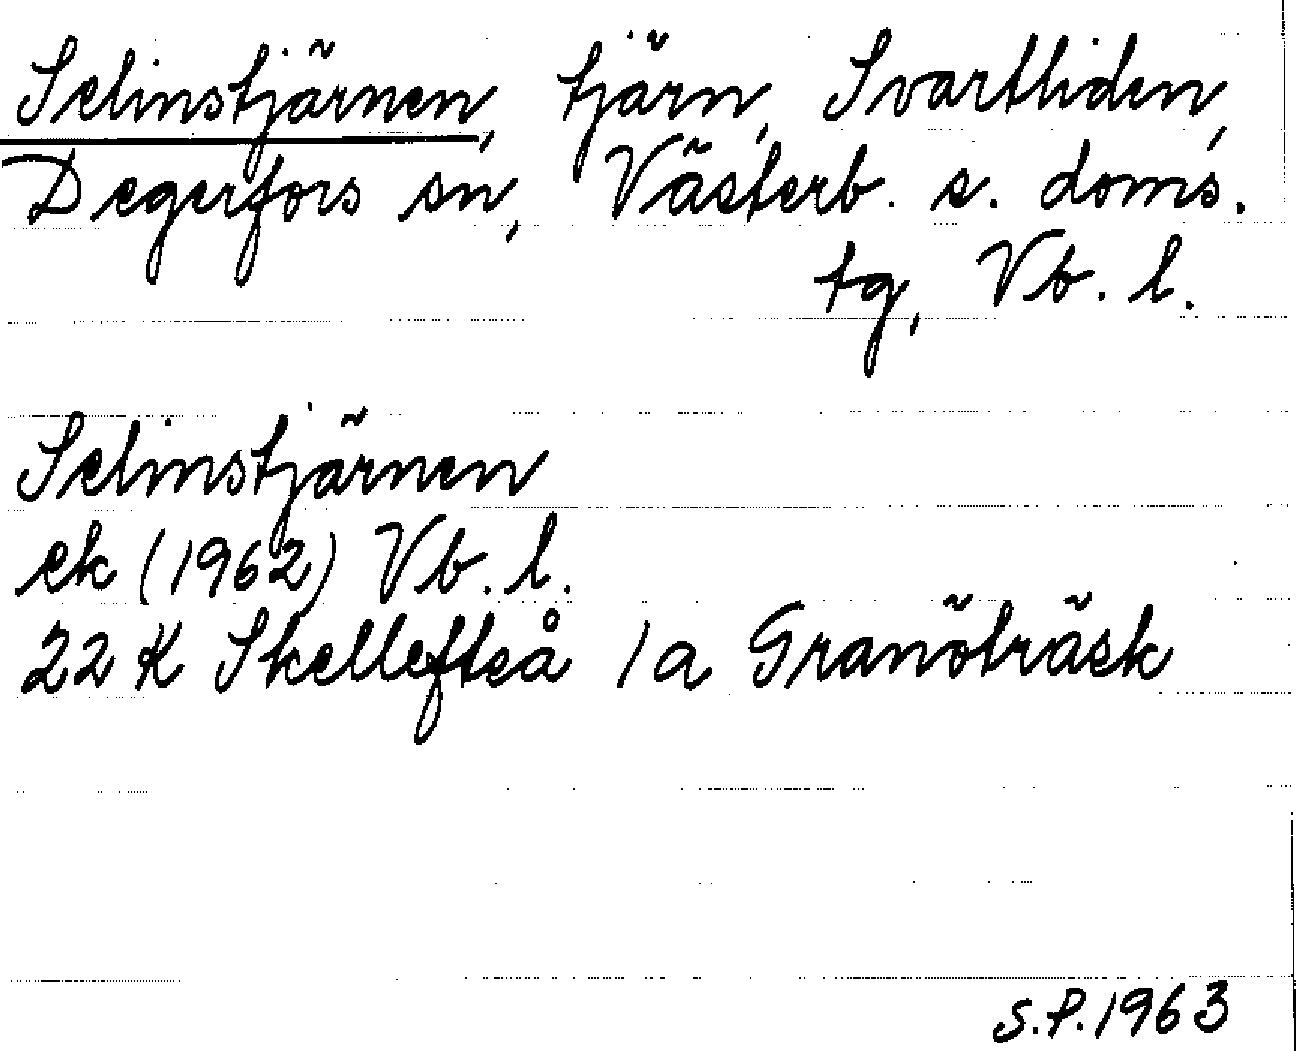 Selinstjärnen, tjärn, Svartliden,
Degerfors sn, Västerb. s. doms.
tg, Vb. l.
Selinstjärnen
ek (1962) Vb. l.
22 K Skellefteå 1a Granöträsk
S.P. 1963